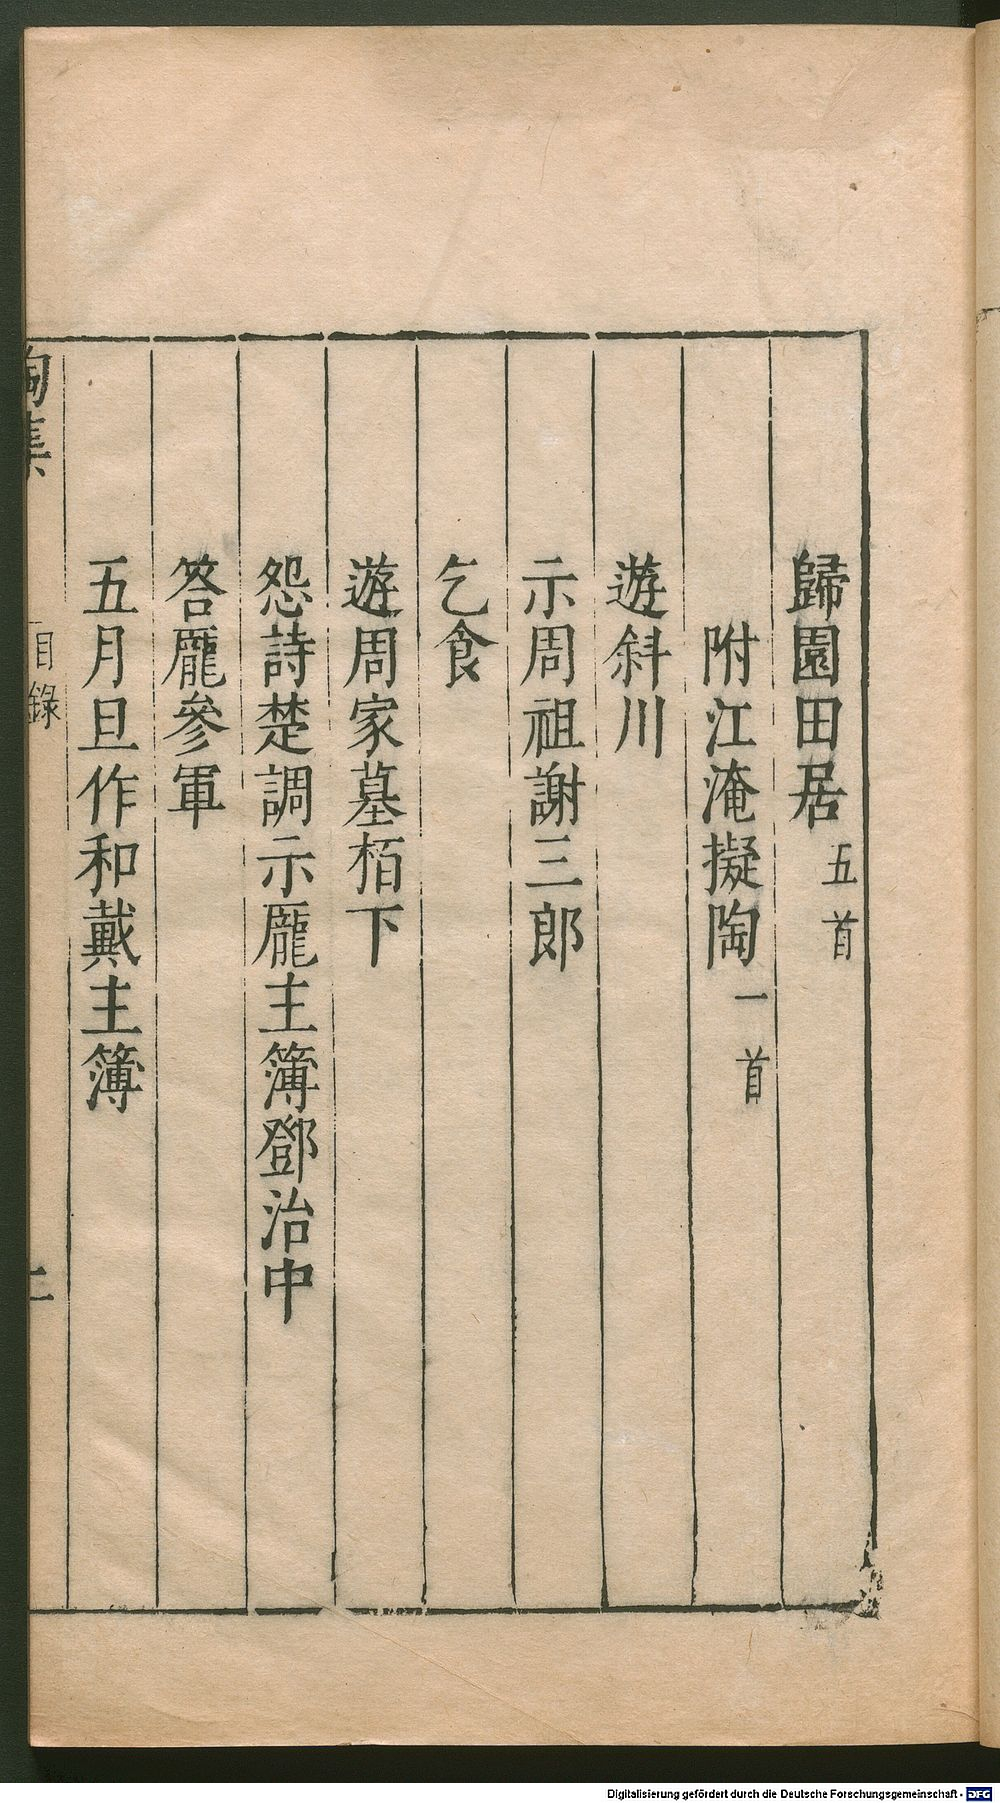 歸園田居五首
附江淹擬陶一首
遊斜川
示周祖謝三郎
乞食
遊周家墓栢下
怨詩楚調示龐主簿鄧治中
答龐參軍
五月旦作和戴主簿
陶集
目錄
二
Digitalisierung gefördert durch die Deutsche Forschungsgemeinschaft - DFG